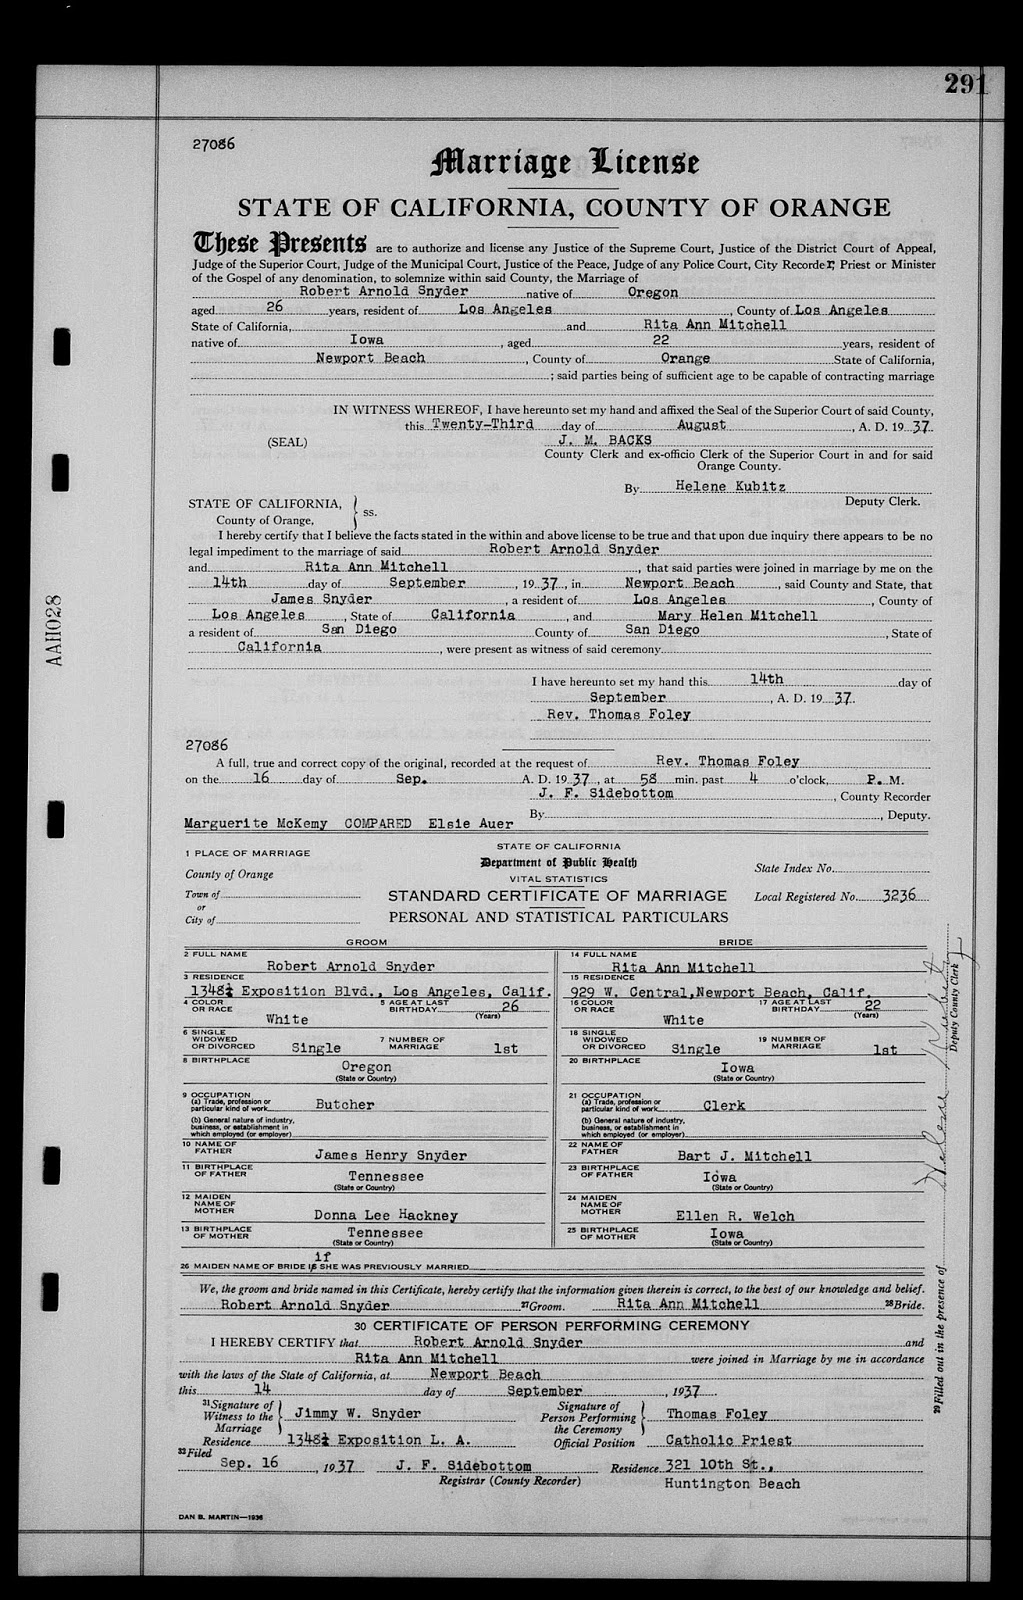 291
27086
Marriage License
STATE OF CALIFORNIA, COUNTY OF ORANGE
These Presents are to authorize and license any Justice of the Supreme Court, Justice of the District Court of Appeal,
Judge of the Superior Court, Judge of the Municipal Court, Justice of the Peace, Judge of any Police Court, City Recorder, Priest or Minister
of the Gospel of any denomination, to solemnize within said County, the Marriage of
Robert Arnold Snyder native of Oregon
aged 26 years, resident of Los Angeles, County of Los Angeles
State of California, and Rita Ann Mitchell
native of Iowa, aged 22 years, resident of
Newport Beach, County of Orange State of California,
; said parties being of sufficient age to be capable of contracting marriage
IN WITNESS WHEREOF, I have hereunto set my hand and affixed the Seal of the Superior Court of said County,
this Twenty-Third day of August, A. D. 19 37.
(SEAL) J. M. BACKS
County Clerk and ex-officio Clerk of the Superior Court in and for said
Orange County.
By Helene Kubitz
Deputy Clerk.
STATE OF CALIFORNIA,
County of Orange, } ss.
I hereby certify that I believe the facts stated in the within and above license to be true and that upon due inquiry there appears to be no
legal impediment to the marriage of said Robert Arnold Snyder
and Rita Ann Mitchell, that said parties were joined in marriage by me on the
14th day of September, 19 37, in Newport Beach, said County and State, that
James Snyder, a resident of Los Angeles, County of
Los Angeles, State of California, and Mary Helen Mitchell
a resident of San Diego County of San Diego, State of
California, were present as witness of said ceremony
I have hereunto set my hand this 14th day of
September, A. D. 19 37.
Rev. Thomas Foley
27086
A full, true and correct copy of the original, recorded at the request of Rev. Thomas Foley
on the 16 day of Sep. A. D. 19 37, at 58 min. past 4 o'clock, P. M.
J. F. Sidebottom, County Recorder
By, Deputy.
Marguerite McKemy COMPARED Elsie Auer
STATE OF CALIFORNIA
Department of Public Health
VITAL STATISTICS
STANDARD CERTIFICATE OF MARRIAGE
PERSONAL AND STATISTICAL PARTICULARS
1 PLACE OF MARRIAGE
County of Orange
Town of
or
City of
State Index No.
Local Registered No. 3236
GROOM
BRIDE
2 FULL NAME Robert Arnold Snyder
14 FULL NAME Rita Ann Mitchell
3 RESIDENCE
1348½ Exposition Blvd., Los Angeles, Calif.
15 RESIDENCE
929 W. Central, Newport Beach, Calif.
4 COLOR OR RACE White
5 AGE AT LAST BIRTHDAY 26 (Years)
16 COLOR OR RACE White
17 AGE AT LAST BIRTHDAY 22 (Years)
6 SINGLE WIDOWED OR DIVORCED Single
7 NUMBER OF MARRIAGE 1st
18 SINGLE WIDOWED OR DIVORCED Single
19 NUMBER OF MARRIAGE 1st
8 BIRTHPLACE Oregon
(State or Country)
20 BIRTHPLACE Iowa
(State or Country)
9 OCCUPATION
(a) Trade, profession or
particular kind of work Butcher
(b) General nature of industry,
business, or establishment in
which employed (or employer)
21 OCCUPATION
(a) Trade, profession or
particular kind of work Clerk
(b) General nature of industry,
business, or establishment in
which employed (or employer)
10 NAME OF FATHER James Henry Snyder
22 NAME OF FATHER Bart J. Mitchell
11 BIRTHPLACE OF FATHER Tennessee
(State or Country)
23 BIRTHPLACE OF FATHER Iowa
(State or Country)
12 MAIDEN NAME OF MOTHER Donna Lee Hackney
24 MAIDEN NAME OF MOTHER Ellen R. Welch
13 BIRTHPLACE OF MOTHER Tennessee
(State or Country)
25 BIRTHPLACE OF MOTHER Iowa
(State or Country)
if
26 MAIDEN NAME OF BRIDE IS SHE WAS PREVIOUSLY MARRIED
We, the groom and bride named in this Certificate, hereby certify that the information given therein is correct, to the best of our knowledge and belief.
Robert Arnold Snyder 27 Groom. Rita Ann Mitchell 28 Bride.
30 CERTIFICATE OF PERSON PERFORMING CEREMONY
I HEREBY CERTIFY that Robert Arnold Snyder and
Rita Ann Mitchell were joined in Marriage by me in accordance
with the laws of the State of California, at Newport Beach
this 14 day of September, 1937.
31 Signature of
Witness to the
Marriage } Jimmy W. Snyder
Signature of
Person Performing
the Ceremony } Thomas Foley
Residence 1348½ Exposition L. A.
Official Position Catholic Priest
32 Filed
Sep. 16, 1937 J. F. Sidebottom
Registrar (County Recorder)
Residence 321 10th St.,
Huntington Beach
DAN B. MARTIN—1936
29 Filled out in the presence of Helene Kubitz
Deputy County Clerk
AAH028